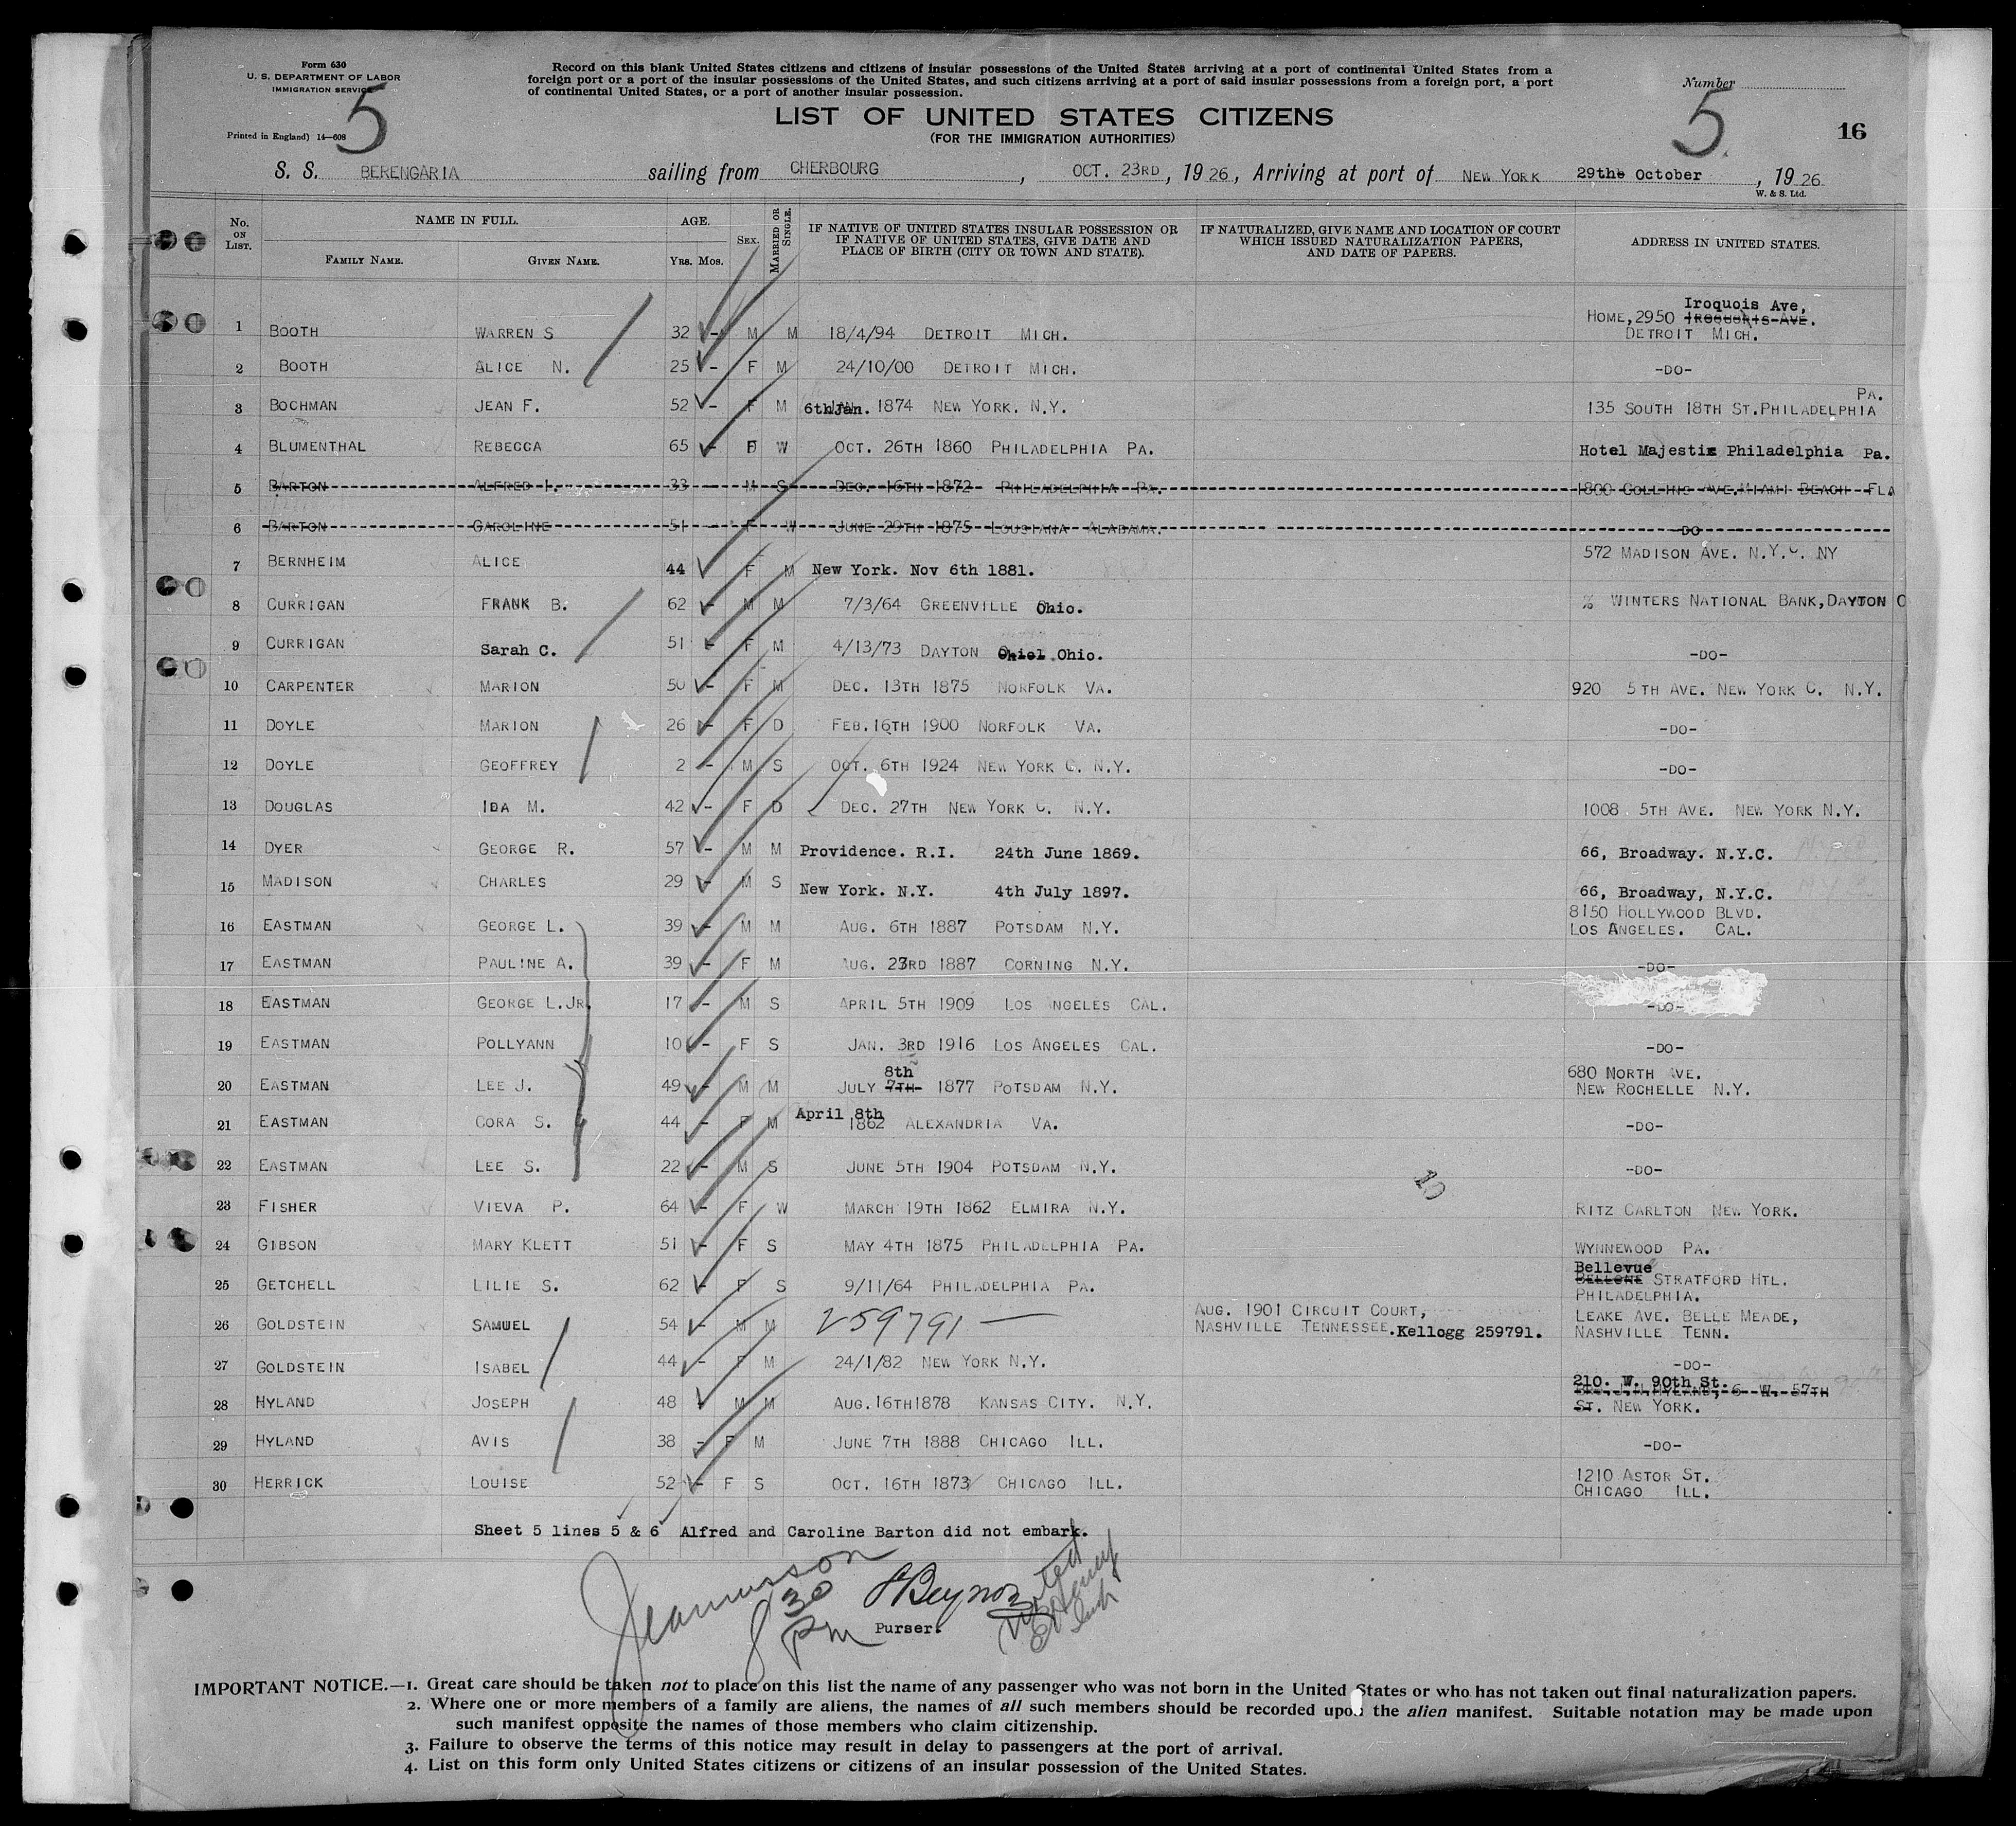 Form 630
U. S. DEPARTMENT OF LABOR
IMMIGRATION SERVICE
5
Printed in England) 14—608
Record on this blank United States citizens and citizens of insular possessions of the United States arriving at a port of continental United States from a
foreign port or a port of the insular possessions of the United States, and such citizens arriving at a port of said insular possessions from a foreign port, a port
of continental United States, or a port of another insular possession.
Number
5
16
LIST OF UNITED STATES CITIZENS
(FOR THE IMMIGRATION AUTHORITIES)
S. S. BERENGARIA sailing from CHERBOURG, OCT. 23RD, 1926, Arriving at port of NEW YORK 29the October, 1926
W. & S. Ltd.
No. ON LIST. NAME IN FULL. FAMILY NAME. GIVEN NAME. AGE. YRS. MOS. SEX. MARRIED OR SINGLE. IF NATIVE OF UNITED STATES INSULAR POSSESSION OR IF NATIVE OF UNITED STATES, GIVE DATE AND PLACE OF BIRTH (CITY OR TOWN AND STATE). IF NATURALIZED, GIVE NAME AND LOCATION OF COURT WHICH ISSUED NATURALIZATION PAPERS, AND DATE OF PAPERS. ADDRESS IN UNITED STATES.
1 BOOTH WARREN S 32 - M M 18/4/94 DETROIT MICH. HOME, 2950 IROQUOIS AVE. Iroquois Ave, DETROIT MICH.
2 BOOTH ALICE N. 25 - F M 24/10/00 DETROIT MICH. -DO-
3 BOCHMAN JEAN F. 52 - F M 6thJan. 1874 NEW YORK. N.Y. 135 SOUTH 18TH ST.PHILADELPHIA PA.
4 BLUMENTHAL REBECCA 65 - F W OCT. 26TH 1860 PHILADELPHIA PA. Hotel Majestic Philadelphia Pa.
5 BARTON ALFRED I. 33 - M S DEC. 16TH 1872 PHILADELPHIA PA. 1800 COLLINS AVE.MIAMI BEACH FLA
6 BARTON CAROLINE 51 - F W JUNE 29TH 1875 LOUSIANA ALABAMA. DO
7 BERNHEIM ALICE 44 F M New York. Nov 6th 1881. 572 MADISON AVE. N.Y.C. NY
8 CURRIGAN FRANK B. 62 - M M 7/3/64 GREENVILLE Ohio. % WINTERS NATIONAL BANK, DAYTON O
9 CURRIGAN Sarah C. 51 - F M 4/13/73 DAYTON Ohiol Ohio. -DO-
10 CARPENTER MARION 50 - F M DEC. 13TH 1875 NORFOLK VA. 920 5TH AVE. NEW YORK C. N.Y.
11 DOYLE MARION 26 - F D FEB. 16TH 1900 NORFOLK VA. -DO-
12 DOYLE GEOFFREY 2 - M S OCT. 6TH 1924 NEW YORK C. N.Y. -DO-
13 DOUGLAS IDA M. 42 - F D DEC. 27TH NEW YORK C. N.Y. 1008 5TH AVE. NEW YORK N.Y.
14 DYER GEORGE R. 57 - M M Providence. R.I. 24th June 1869. 66, Broadway. N.Y.C.
15 MADISON CHARLES 29 - M S New York. N.Y. 4th July 1897. 66, Broadway, N.Y.C.
16 EASTMAN GEORGE L. 39 - M M AUG. 6TH 1887 POTSDAM N.Y. 8150 HOLLYWOOD BLVD. LOS ANGELES. CAL.
17 EASTMAN PAULINE A. 39 - F M AUG. 23RD 1887 CORNING N.Y. -DO-
18 EASTMAN GEORGE L.JR. 17 - M S APRIL 5TH 1909 LOS ANGELES CAL. -DO-
19 EASTMAN POLLYANN 10 - F S JAN. 3RD 1916 LOS ANGELES CAL. -DO-
20 EASTMAN LEE J. 49 - M M JULY 7TH 8th 1877 POTSDAM N.Y. 680 NORTH AVE. NEW ROCHELLE N.Y.
21 EASTMAN CORA S. 44 - F M April 8th 1862 ALEXANDRIA VA. -DO-
22 EASTMAN LEE S. 22 - M S JUNE 5TH 1904 POTSDAM N.Y. -DO-
10
23 FISHER VIEVA P. 64 - F W MARCH 19TH 1862 ELMIRA N.Y. RITZ CARLTON NEW YORK.
24 GIBSON MARY KLETT 51 - F S MAY 4TH 1875 PHILADELPHIA PA. WYNNEWOOD PA.
25 GETCHELL LILIE S. 62 - F S 9/11/64 PHILADELPHIA PA. Bellevue STRATFORD HTL. PHILADELPHIA.
26 GOLDSTEIN SAMUEL 54 - M M 259791 — AUG. 1901 CIRCUIT COURT, NASHVILLE TENNESSEE. Kellogg 259791. LEAKE AVE. BELLE MEADE, NASHVILLE TENN.
27 GOLDSTEIN ISABEL 44 - F M 24/1/82 NEW YORK N.Y. -DO-
28 HYLAND JOSEPH 48 - M M AUG.16TH1878 KANSAS CITY. N.Y. 210. W. 90th St. HYLAND, 6 W. 57TH ST. NEW YORK.
29 HYLAND AVIS 38 - F M JUNE 7TH 1888 CHICAGO ILL. -DO-
30 HERRICK LOUISE 52 - F S OCT. 16TH 1873 CHICAGO ILL. 1210 ASTOR ST. CHICAGO ILL.
Sheet 5 lines 5 & 6 Alfred and Caroline Barton did not embark.
8 30
pm
Purser.
IMPORTANT NOTICE.—1. Great care should be taken not to place on this list the name of any passenger who was not born in the United States or who has not taken out final naturalization papers.
2. Where one or more members of a family are aliens, the names of all such members should be recorded upon the alien manifest. Suitable notation may be made upon
such manifest opposite the names of those members who claim citizenship.
3. Failure to observe the terms of this notice may result in delay to passengers at the port of arrival.
4. List on this form only United States citizens or citizens of an insular possession of the United States.